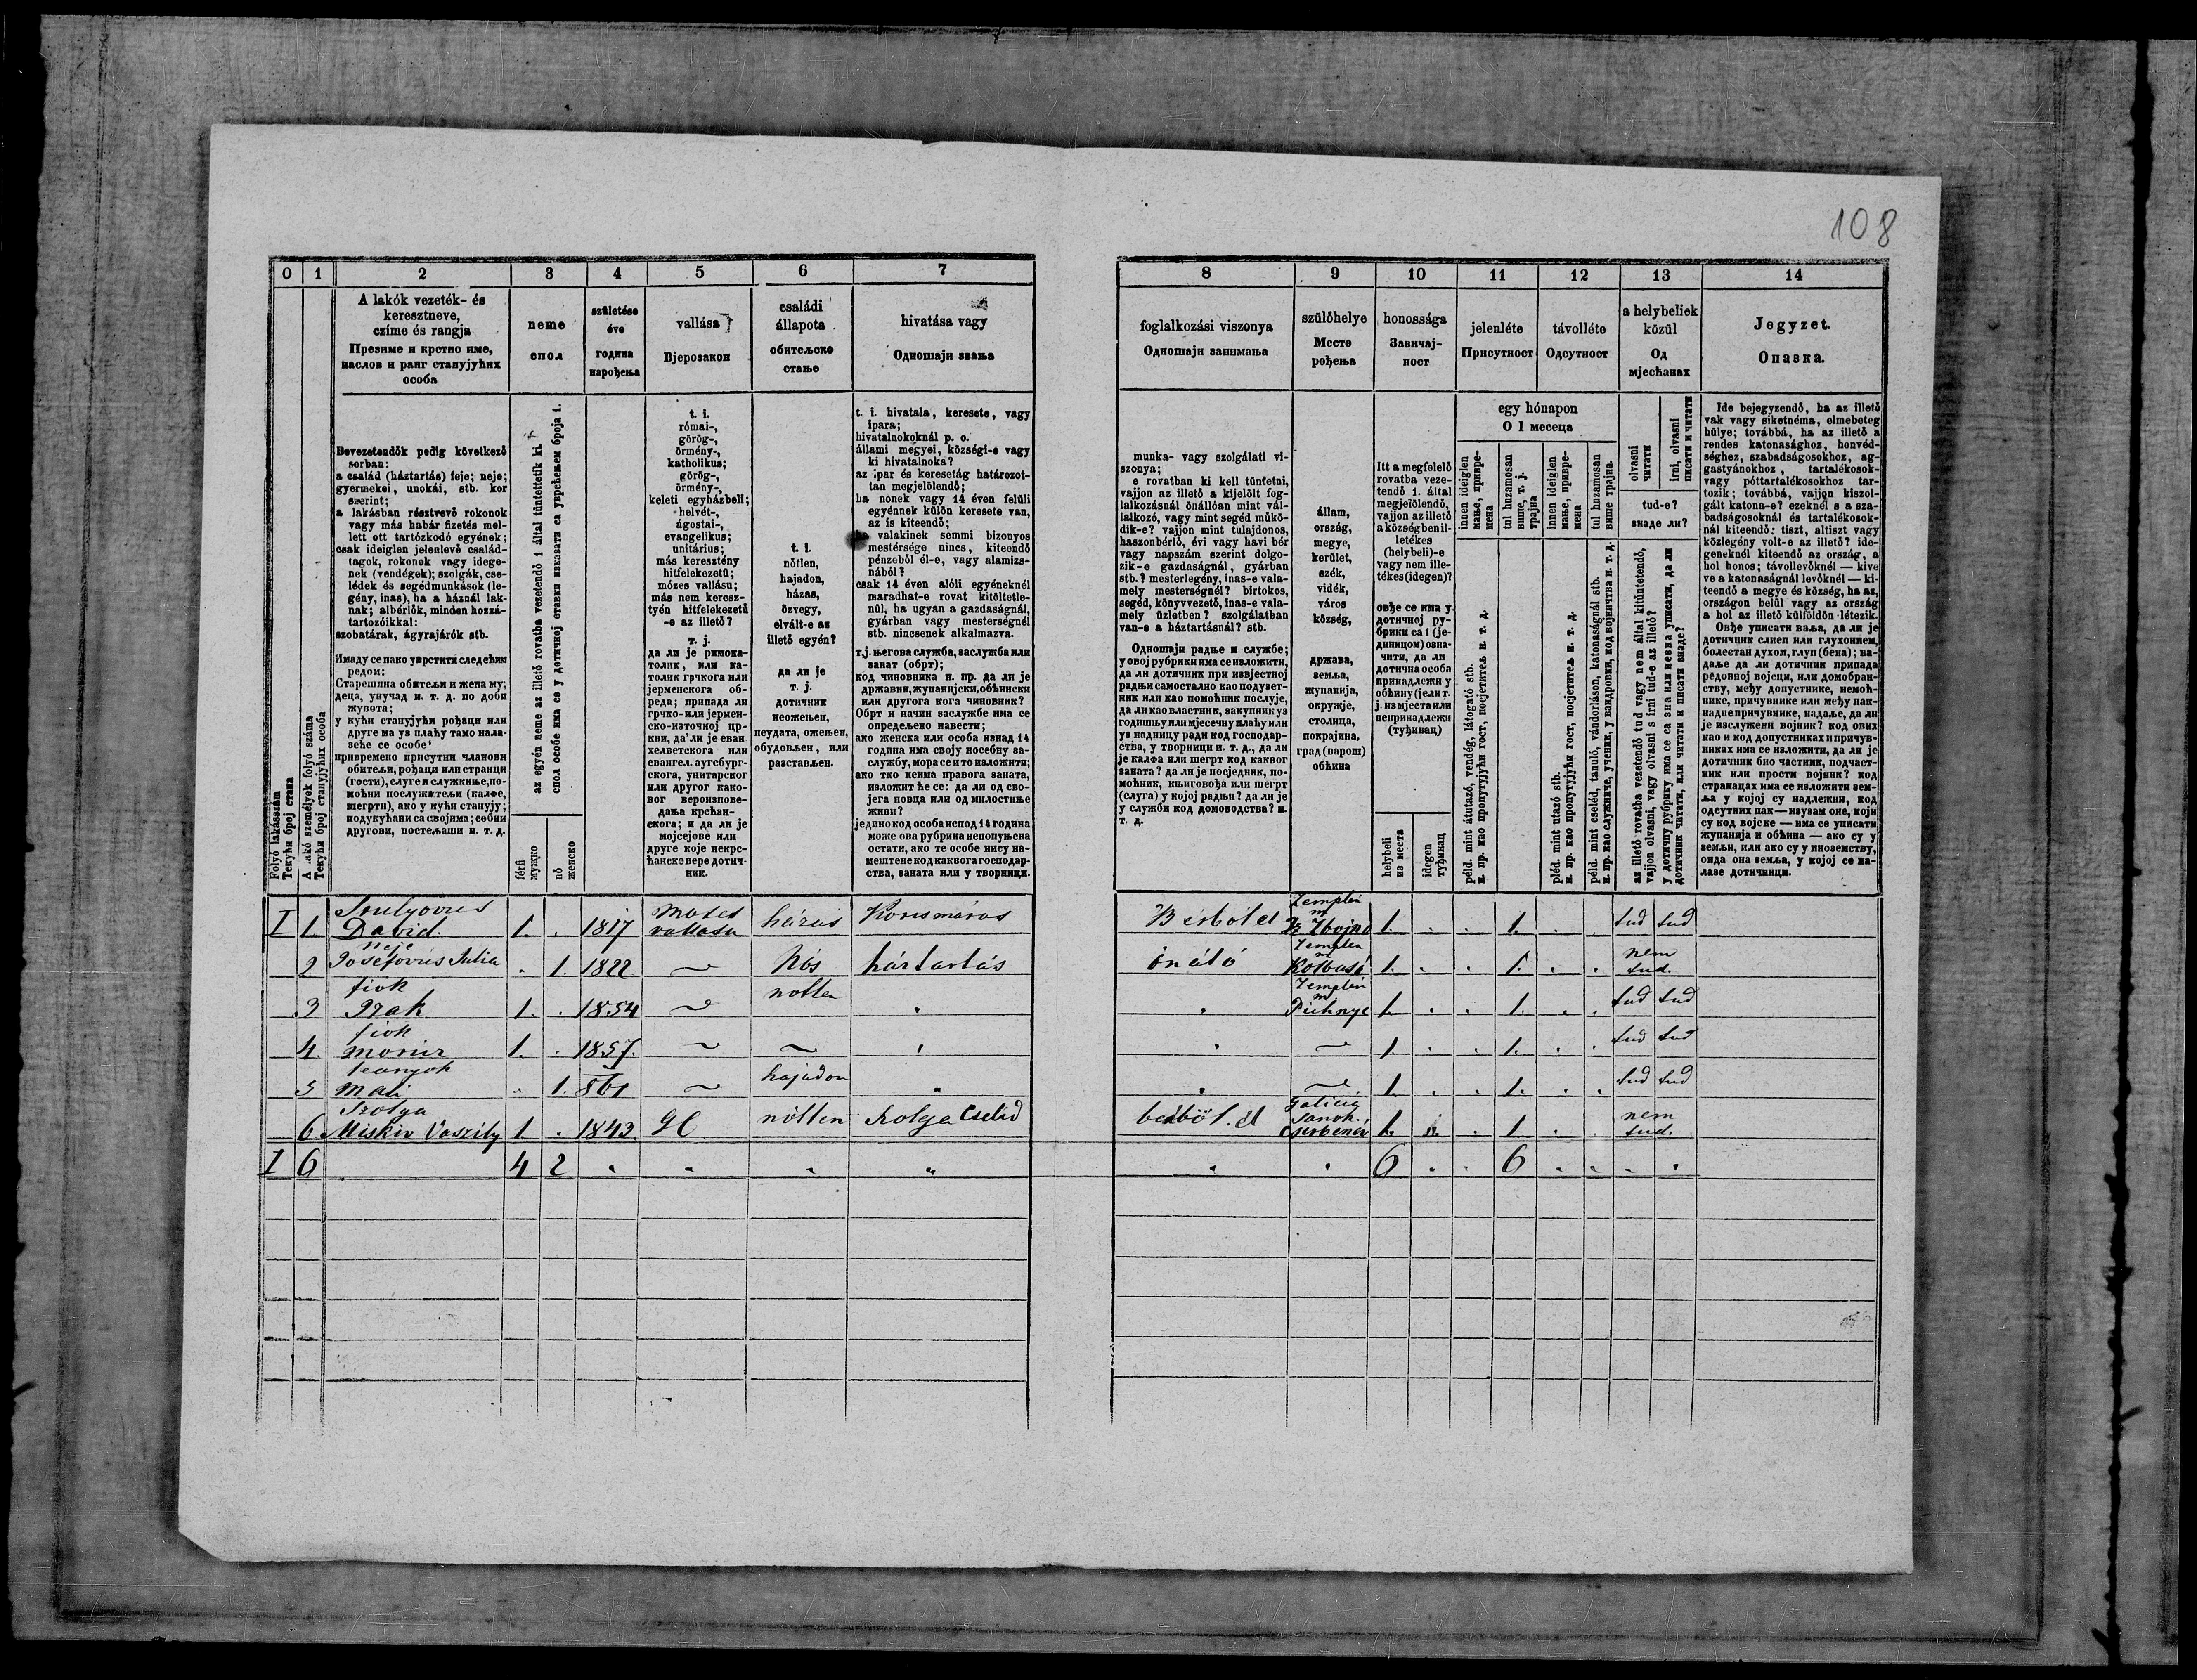 108
0 1 2 3 4 5 6 7
A lakók vezeték- és
keresztneve,
czíme és rangja
Презиме и крстно име,
наслов и ранг станујућих
особа
neme
спол
születése
éve
година
нарођења
vallása
Вјерозакон
családi
állapota
обитељско
стање
hivatása vagy
Одношаји звања
Bevezetendők pedig következő
sorban:
a család (háztartás) feje; neje;
gyermekei, unokái, stb. kor
szerint;
a lakásban résztvevő rokonok
vagy más habár fizetés mel-
lett ott tartózkodó egyének;
csak ideiglen jelenlevő család-
tagok, rokonok vagy idege-
nek (vendégek); szolgák, cse-
lédek és segédmunkások (le-
gény, inas), ha a háznál lak-
nak; albérlők, minden hozzá-
tartozóikkal:
szobatárak, ágyrajárók stb.
Имаду се пако уврстити следећим
редом:
Старешина обитељи и жена му;
деца, унучад и. т. д. по доби
живота;
у кући станујући рођаци или
друге ма уз плаћу тамо нала-
зеће се особе;
привремено присутни чланови
обитељи, рођаци или странци
(гости), слуге и служкиње, по-
моћни послужитељи (калфе,
шегрти), ако у кући станују;
подукућани са својима; собни
другови, постељаши и. т. д.
Folyó lakásszám
Текући број стана
A lakó személyek folyó száma
Текући број станујућих особа
az egyén neme az illető rovatba vezetendő 1 által tüntettetik ki.
спол особе има се у дотичној ставки исказати са уврсћењем броја 1.
férfi
мужко
nő
женско
t. i.
római-,
görög-,
örmény-,
katholikus;
görög-,
örmény-,
keleti egyházbeli;
helvét-,
ágostai-,
evangelikus;
unitárius;
más keresztény
hitfelekezetű;
mózes vallásu;
más nem keresz-
tyén hitfelekezetű
-e az illető?
т. ј.
да ли је римока-
толик, или ка-
толик грчкога или
јерменскога об-
реда; припада ли
грчко- или јермен-
ско-източној цр-
кви, да'ли је еван
хелветскога или
евангел. аугсбург-
скога, унитарског
или другог како-
вог вероизпове-
дања крсћан-
скога; и да ли је
мојсејове или
друге које некрс-
ћанске вере дотич-
ник.
t. i.
nőtlen,
hajadon,
házas,
özvegy,
elvált-e az
illető egyén?
да ли је
т. ј.
дотичник
неожењен,
неудата, ожењен,
обудовљен, или
разстављен.
t. i. hivatala, keresete, vagy
ipara;
hivatalnokoknál p. o.
állami megyei, községi-e vagy
ki hivatalnoka?
az ipar és keresetág határozot-
tan megjelölendő;
ha nonek vagy 14 éven felüli
egyénnek külön keresete van,
az is kiteendő;
ha valakinek semmi bizonyos
mestérsége nincs, kiteendő
pénzeből él-e, vagy alamizs-
nából?
csak 14 éven alóli egyéneknél
maradhat-e rovat kitöltetle-
nül, ha ugyan a gazdaságnál,
gyárban vagy mesterségnél
stb. nincsenek alkalmazva.
т.ј. његова служба, заслужба или
занат (обрт);
код чиновника н. пр. да ли је
државни, жупанијски, обћински
или другога кога чиновник?
Обрт и начин заслужбе има се
определено навести;
ако женска или особа изнад 14
година има своју посебну за-
службу, мора се и то изложити;
ако тко неима правога заната,
изложит ће се: да ли од сво-
јега новца или од милостиње
живи?
једино код особа испод 14 година
може ова рубрика непопуњена
остати, ако те особе нису на-
мештене код каквога господар-
ства, заната или у творници.
8 9 10 11 12 13 14
foglalkozási viszonya
Одношаји занимања
szülőhelye
Место
рођења
honossága
Завичај-
ност
jelenléte
Присутност
távolléte
Одсутност
a helybeliek
közül
Од
мјесћанах
Jegyzet.
Опазка.
munka- vagy szolgálati vi-
szonya;
e rovatban ki kell tüntetni,
vajjon az illető a kijelölt fog-
lalkozásnál önállóan mint vál-
lalkozó, vagy mint segéd műkö-
dik-e? vajjon mint tulajdonos,
haszonbérlő, évi vagy havi bér
vagy napszám szerint dolgo-
zik-e gazdaságnál, gyárban
stb.? mesterlegény, inas-e vala-
mely mesterségnél? birtokos,
segéd, könyvvezető, inas-e vala-
mely üzletben? szolgálatban
van-e a háztartásnál? stb.
Одношаји радње и службе;
у овој рубрики има се изложити,
да ли дотичник при извјестној
радњи самостално као подузет-
ник или као помоћник послује,
да ли као властник, закупник уз
годишњу или мјесечну плаћу или
уз надницу ради код господар-
ства, у творници и. т. д., да ли
је калфа или шегрт код каквог
заната? да ли је посједник, по-
моћник, књиговођа или шегрт
(слуга) у којој радњи? да ли је
у служби код домоводства? и.
т. д.
állam,
ország,
megye,
kerület,
szék,
vidék,
város
község,
држава,
земља,
жупанија,
окружје,
столица,
покрајина,
град (варош)
обћина
Itt a megfelelő
rovatba veze-
tendő 1. által
megjelölendő,
vajjon az illető
a községben il-
letékes
(helybeli)-e
vagy nem ille-
tékes (idegen)?
овђе се има у
дотичној ру-
брики са 1 (је-
диницом) озна-
чити, да ли
дотична особа
принадлежи у
обћину (јели т.
ј. из мјеста или
непринадлежи
(туђинац)
helybeli
из места
idegen
туђинац
egy hónapon
О 1 месеца
innen ideiglen
мање, привре-
мена
tul huzamosan
више, т. ј.
трајна
innen ideiglen
мање, привре-
мена
tul huzamosan
више трајна.
péld. mint átutazó, vendég, látogató stb.
н. пр. као пропутујући гост, посјетитељ и. т. д.
pléd. mint utazó stb.
н. пр. као пропутујући гост, посјетитељ и. т. д.
péld. mint cseléd, tanuló, vándorláson, katonaságnál stb.
н. пр. као служниче, ученик, у вандровки, код војничтва и. т. д.
olvasni
читати
irni, olvasni
писати и читати
tud-e?
знаде ли?
az illető rovatba vezetendő tud vagy nem által kitüntetendő,
vajjon olvasni, vagy olvasni s irni tud-e az illető?
у дотичну рубрику има се са зна или незна уписати, да ли
дотичник читати, или читати и писати знаде?
Ide bejegyzendő, ha az illető
vak vagy siketnéma, elmebeteg
hülye; továbbá, ha az illető a
rendes katonasághoz, honvéd-
séghez, szabadságosokhoz, ag-
gastyánokhoz, tartalékosok-
vagy póttartalékosokhoz tar-
tozik; továbbá, vajjon kiszol-
gált katona-e? ezeknél s a sza-
badságosoknál és tartalékosok-
nál kiteendő: tiszt, altiszt vagy
közlegény volt-e az illető? ide-
geneknél kiteendő az ország, a
hol honos; távollevőknél — kive
ve a katonaságnál levőknél — ki-
teendő a megye és község, ha az,
országon belül vagy az ország
a hol az illető külföldön létezik.
Овђе уписати ваља, да ли је
дотичник слиеп или глухонием,
болестан духом, глуп (бена); на-
даље да ли дотичник припада
редовној војсци, или домобран-
ству, међу допустнике, немоћ-
нике, причувнике или међу нак-
надне причувнике, надаље, да ли
је изслужени војник? код ових
као и код допустниках и причув-
никах има се изложити, да ли је
дотичник био частник, подчаст-
ник или прости војник? код
странацах има се изложити зем-
ља у којој су надлежни, код
одсутних пак — изузам оне, који
су код војске — има се уписати
жупанија и обћина — ако су у
земљи, или ако су у иноземству,
онда она земља, у којој се на-
лазе дотичници.
I 1 David 1. . 1817 Moses vallasu házas Korcsmáros Zemplin m 1. . . 1. . . tud tud
2 neje Josefovics Julia . 1. 1822 háztartás önáló Zemplen m Kolbasó 1. . . 1. . . nem tud.
3 fiok Izak 1. . 1854 notlen Zemplin m Pichnye 1. . . 1. . . tud tud
4. fiok Moricz 1. . 1857. 1. . . 1. . . tud tud
5 leanyok Mali . 1. 861 hajadon 1. . . 1. . . tud tud
6 Szolga Miskiv Vaszily 1. . 1843 GC nőtlen Szolga Cseléd Galicia Sanok 1. . 1 . . nem tud.
I 6 4 2 6 . . 6 . . . .